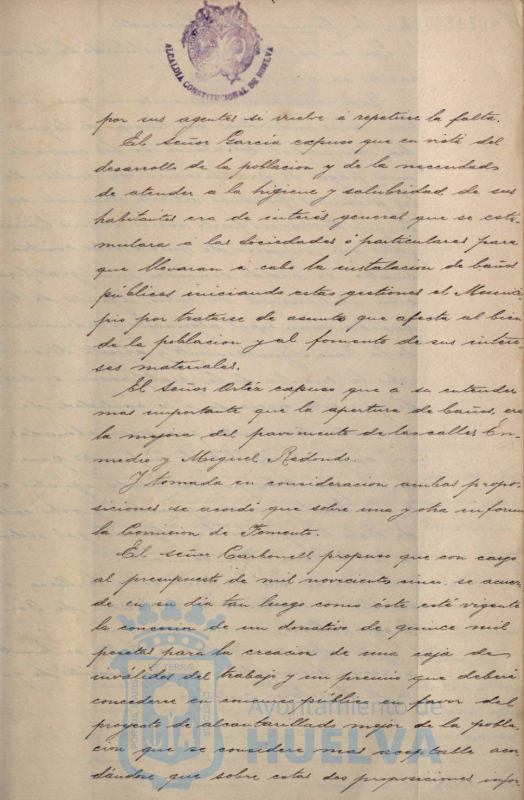 ALCALDIA CONSTITUCIONAL DE HUELVA
por sus agentes se vuelve á repetirse la falta.
El Señor García expuso que en vista del
desarrollo de la poblacion y de la necesidad
de atender a la higiene y salubridad de sus
habitantes era de interés general que se esti-
mulara á las Sociedades ó particulares para
que llevaran á cabo la instalacion de baños
públicos iniciando estas gestiones el Munici
pio por tratarse de asunto que afecta al bien
de la poblacion y al fomento de sus intere-
ses materiales.
El Señor Ortiz expuso que á su entender
más importante que la apertura de baños, era
la mejora del pavimento de las calles En-
medio y Miguel Redondo.
Y tomada en consideracion ambas propo-
siciones se acordó que sobre una y otra informe
la Comision de Fomento.
El Señor Carbonell propuso que con cargo
al presupuesto de mil novecientos se acuer
de en su dia tan luego como éste esté vigente
la concesion de un donativo de quince mil
pesetas para la creacion de una caja de
inválidos del trabajo y un premio que deberá
concederse en concurso público a favor del
proyecto de alcantarillado mejor de la pobla-
cion que se considere mas aceptable acor
dándose que sobre estas dos proposiciones infor
Ayuntamiento de
HUELVA